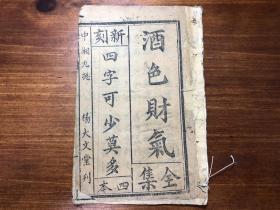 酒色財氣
全集
新刻
四字可少莫多
四本
中湘九總
楊大文堂刊